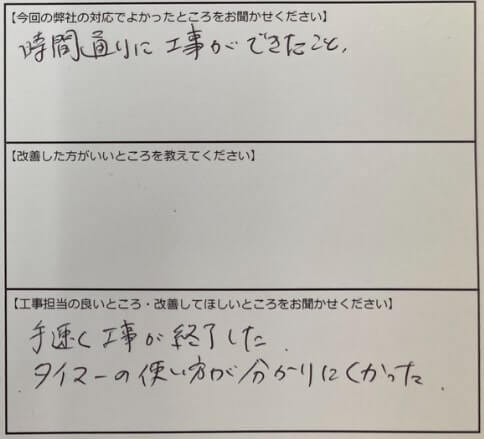 【今回の弊社の対応でよかったところをお聞かせください】
時間通りに工事ができたこと、
【改善した方がいいところを教えてください】
【工事担当の良いところ・改善してほしいところをお聞かせください】
手速く工事が終了した
タイマーの使い方が分かりにくかった.